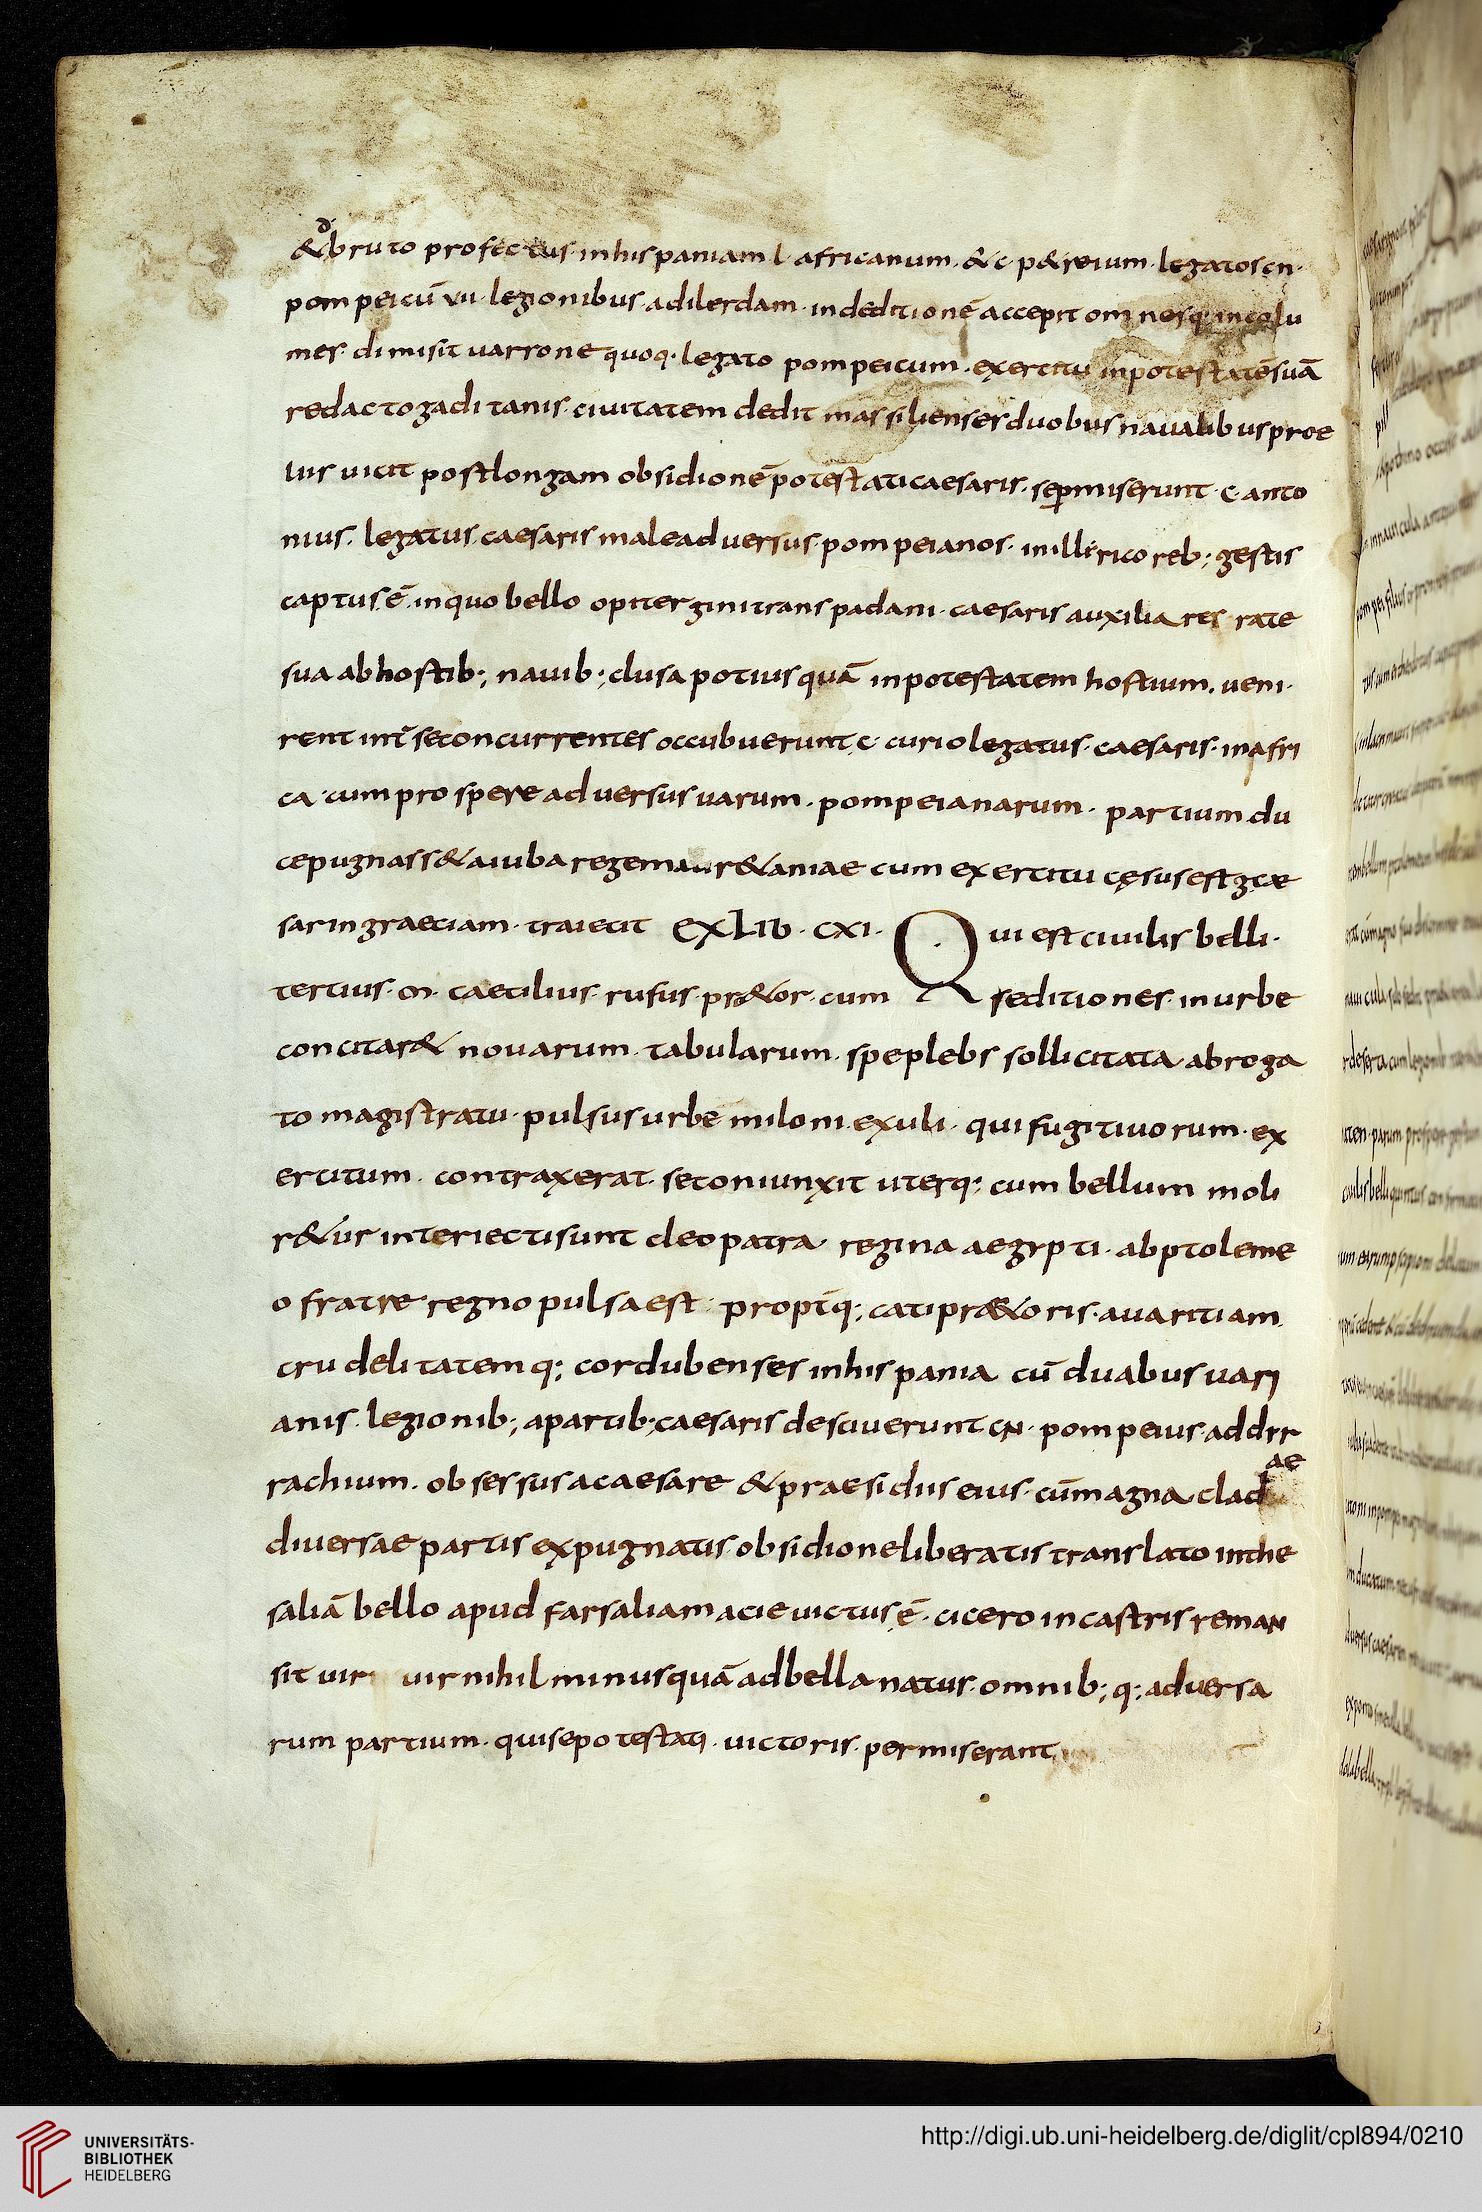 &d bruto profectus · inhispaniam l · africanum · & c · p&reium · legatos cn ·
pompeicū vii · legionibus · adilerdam · indeditionē accepit omnesq · incolu
mes · dimisit uarrone quoq · legato pompeicum · exercitu inpotestatēsuā
redacto gaditanis · ciuitatem dedit massilienses duobus naualibus proe
liis uicit post longam obsidionē potestati caesaris · sepmiserunt · c · anto
nius · legatus caesaris male aduersus · pompeianos · inillirico reb; gestis
captus ē · inquo bello opitergini transpadani · caesaris auxiliares rate
sua abhostib; nauib; clusa potius quā inpotestatem hostium · ueni ·
rent int̄ seconcurrentes occubuerunt c · curio legatus · caesaris · inafri
ca · cum prospere aduersus uarum · pompeianarum · partium du
ce pugnass& aiuba rege maur&aniae cum exercitu cęsus est g cae
sar ingraeciam · traiecit EX LIB · CXI · Qui est ciuilis belli ·
tertius · m · caecilius · rufus · pr&or · cum seditiones · inurbe
concitar& nouarum · tabularum · spe plebs sollicitata abroga
to magistratu · pulsus urbe miloni exuli · qui fugitiuorum · ex
ercitum · contraxerat · seconiunxit uterq; cum bellum moli
r&ur interiecti sunt cleopatra · regina aegypti · abptoleme
o fratre regno pulsa est · propt̄q; cati pr&oris · auaritiam
crudelitatemq; cordubenses inhispania cū duabus uari
anis · legionib; apartib; caesaris desciuerunt cn · pompeius · addyr
rachium · obsessus acaesare & praesidiis eius · cū magna clad
ae
diuersae partis expugnatis · obsidione liberatis translato inthe
saliā bello apud farsaliam acie uictus ē · cicero incastris reman
sit uir uir nihil minus quā adbella natus · omnib; q; aduersa
rum partium · qui se potestati · uictoris · permiserant
UNIVERSITÄTS-
BIBLIOTHEK
HEIDELBERG
http://digi.ub.uni-heidelberg.de/diglit/cpl894/0210